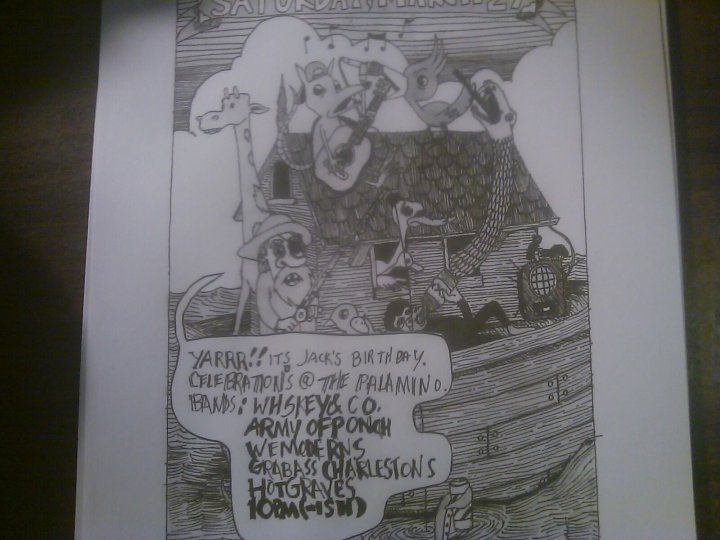 SATURDAY MARCH 27
YARRR!! ITS JACK'S BIRTHDAY.
CELEBRATION'S @ THE PALAMINO.
BANDS: WHSKEY & CO.
ARMY OF PONCH
WE MODERNS
GRABASS CHARLESTONS
HOT GRAVES
10PM(-ISH)